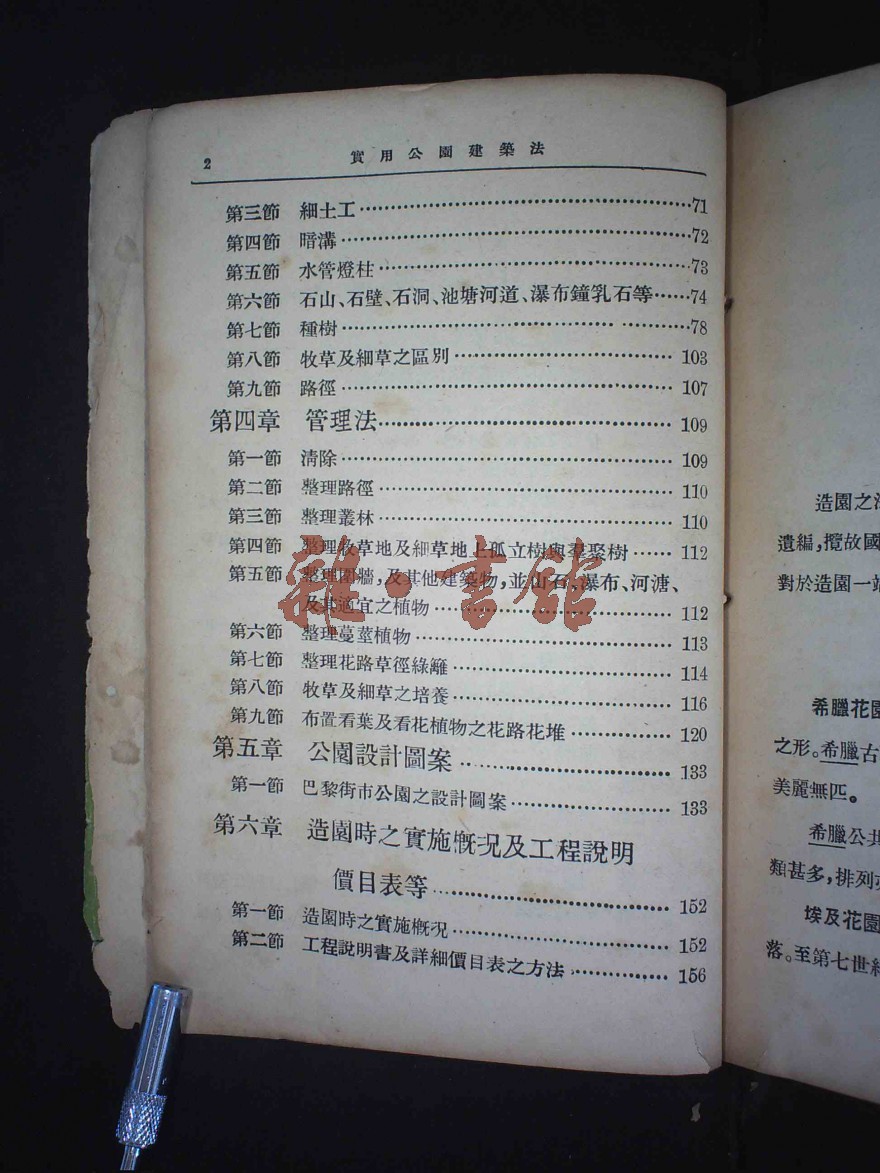 2 實用公園建築法
第三節 細土工……71
第四節 暗溝……72
第五節 水管燈柱……73
第六節 石山、石壁、石洞、池塘河道、瀑布鐘乳石等……74
第七節 種樹……78
第八節 牧草及細草之區別……103
第九節 路徑……107
第四章 管理法……109
第一節 清除……109
第二節 整理路徑……110
第三節 整理叢林……110
第四節 整理牧草地及細草地上孤立樹與羣聚樹……112
第五節 整理圍牆,及其他建築物,並山石、瀑布、河溏、
及其適宜之植物……112
第六節 整理蔓莖植物……113
第七節 整理花路草徑綠籬……114
第八節 牧草及細草之培養……116
第九節 布置看葉及看花植物之花路花堆……120
第五章 公園設計圖案……133
第一節 巴黎街市公園之設計圖案……133
第六章 造園時之實施概况及工程說明
價目表等……152
第一節 造園時之實施概况……152
第二節 工程說明書及詳細價目表之方法……156
雜·書館
造園之
遺編,攬故國
對於造園一
希臘花園
之形。希臘古
美麗無匹。
希臘公共
類甚多,排列
埃及花園
落。至第七世紀